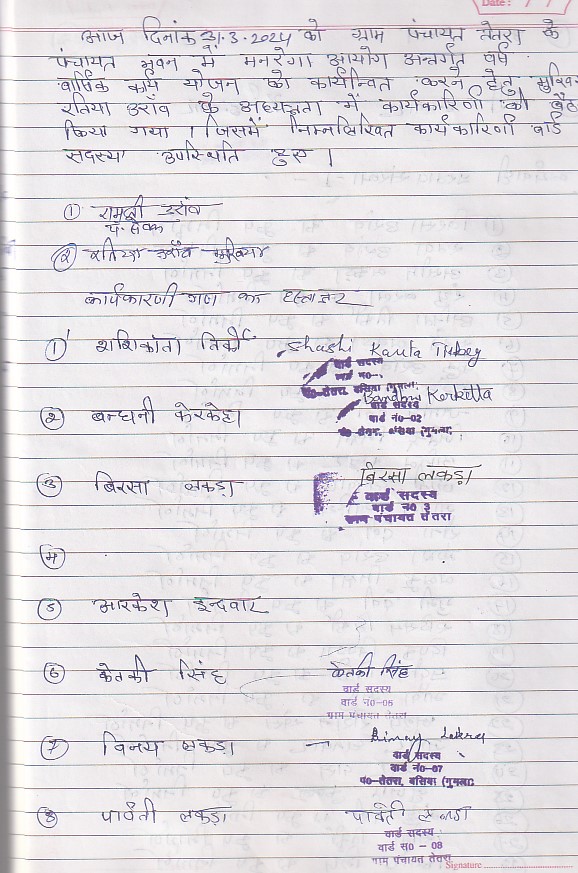 Date :
आज दिनांक 31.3.2024 को ग्राम पंचायत तेतरा के
पंचायत भवन में मनरेगा आयोग अन्तर्गत वर्ष
वार्षिक कार्य योजन को कार्यान्वित करने हेतु मुखिया
रतिया उराँव के अध्यक्षता में कार्यकारिणी की बैठ
किया गया । जिसमें निम्नलिखित कार्यकारिणी वार्ड
सदस्या उपस्थिति हुए ।
① रामद्वी उराँव
पं. सेवक
② रतिया उराँव मुखिया
कार्यकारणी गण का हस्ताक्षर
① शशिकांता तिर्की Shashi Kanta
वार्ड सदस्य
वार्ड न०-
पं०-तेतरा, बसिया (गुमला)
② बन्धनी केरकेट्टा Bandhni Kerketta
वार्ड सदस्य
वार्ड नं०-02
पं०-तेतरा, बसिया (गुमला)
③ बिरसा लकड़ा बिरसा लकड़ा
वार्ड सदस्य
वार्ड न० 3
ग्राम पंचायत तेतरा
④
⑤ मारकेश इन्दवार
⑥ केतकी सिंह केतकी सिंह
वार्ड सदस्य
वार्ड न०-06
ग्राम पंचायत तेतरा
⑦ विनय लकड़ा - Binay Lakra
वार्ड सदस्य
वार्ड नं०-07
पं०-तेतरा, बसिया (गुमला)
⑧ पार्वती लकड़ा पार्वती लकड़ा
वार्ड सदस्य
वार्ड स० - 08
ग्राम पंचायत तेतरा
Signature